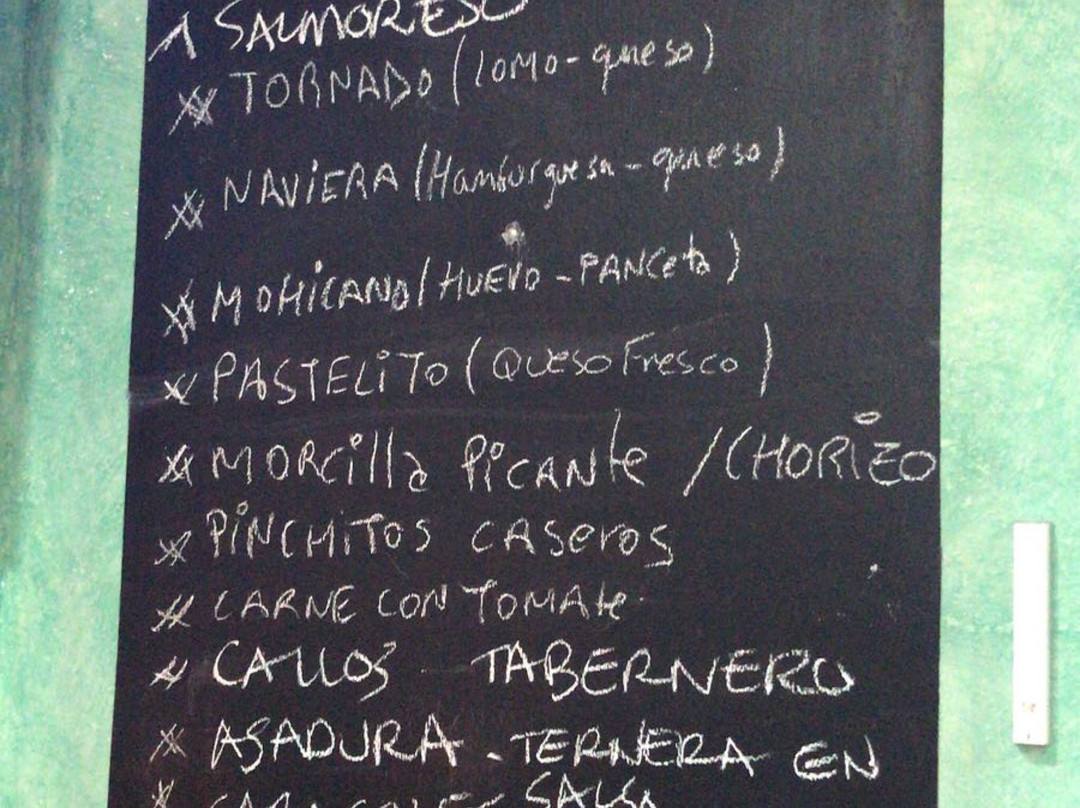 SALMOREJO
TORNADO (lomo-queso)
NAVIERA (Hamburguesa-queso)
MOHICANO (HUEVO-PANCeta)
PASTELiTo (QUeso FResco)
MORCilla PiCANte / CHORIZO
PiNCHiTOS CASeros
CARNE CON TOMAte
CALLOS - TABERNERO
ASADURA - TERNERA EN
CARACOLES SALSA